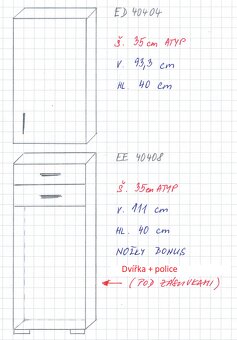 ED 40404
Š. 35 cm ATYP
V. 93,3 cm
HL. 40 cm
EE 40408
Š. 35cm ATYP
V. 111 cm
HL. 40 cm
NOŽKY BONUS
Dvířka + police
(POD ZÁSUVKAMI)